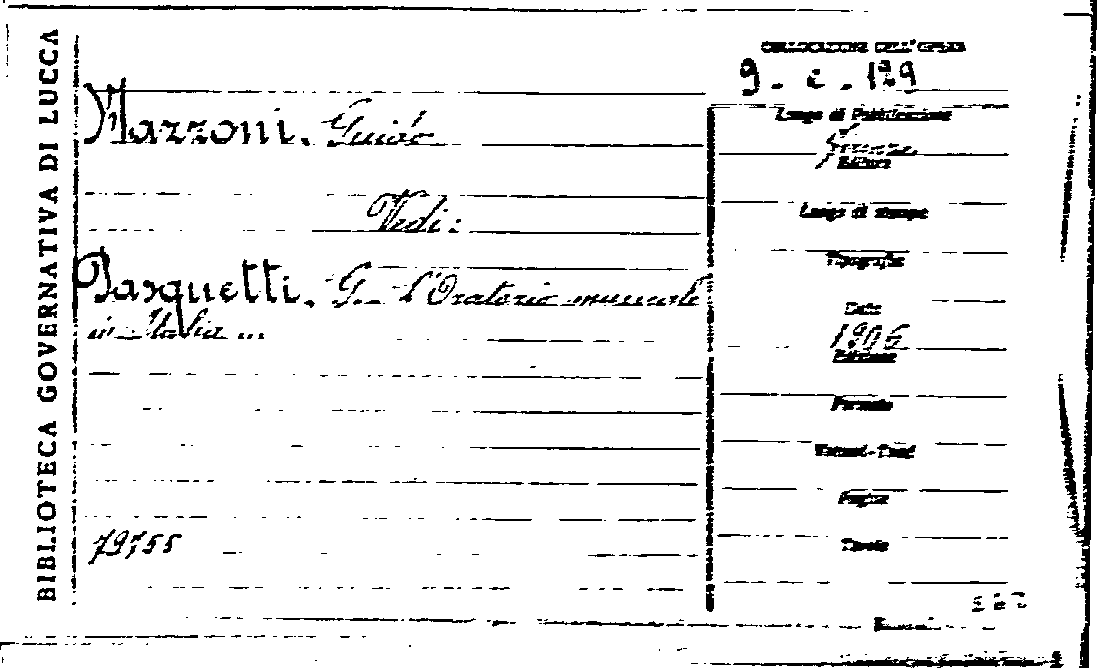 BIBLIOTECA GOVERNATIVA DI LUCCA
COLLOCAZIONE DELL'OPERA
9. c. 129
Mazzoni. Guido
Vedi:
Pasquetti. G. L'Oratorio musicale
in Italia ...
79755
Luogo di Pubblicazione
Firenze
Editore
Luogo di stampa
Tipografia
Date
1906
Edizione
Formato
Volumi-Tomi
Pagine
Tavole